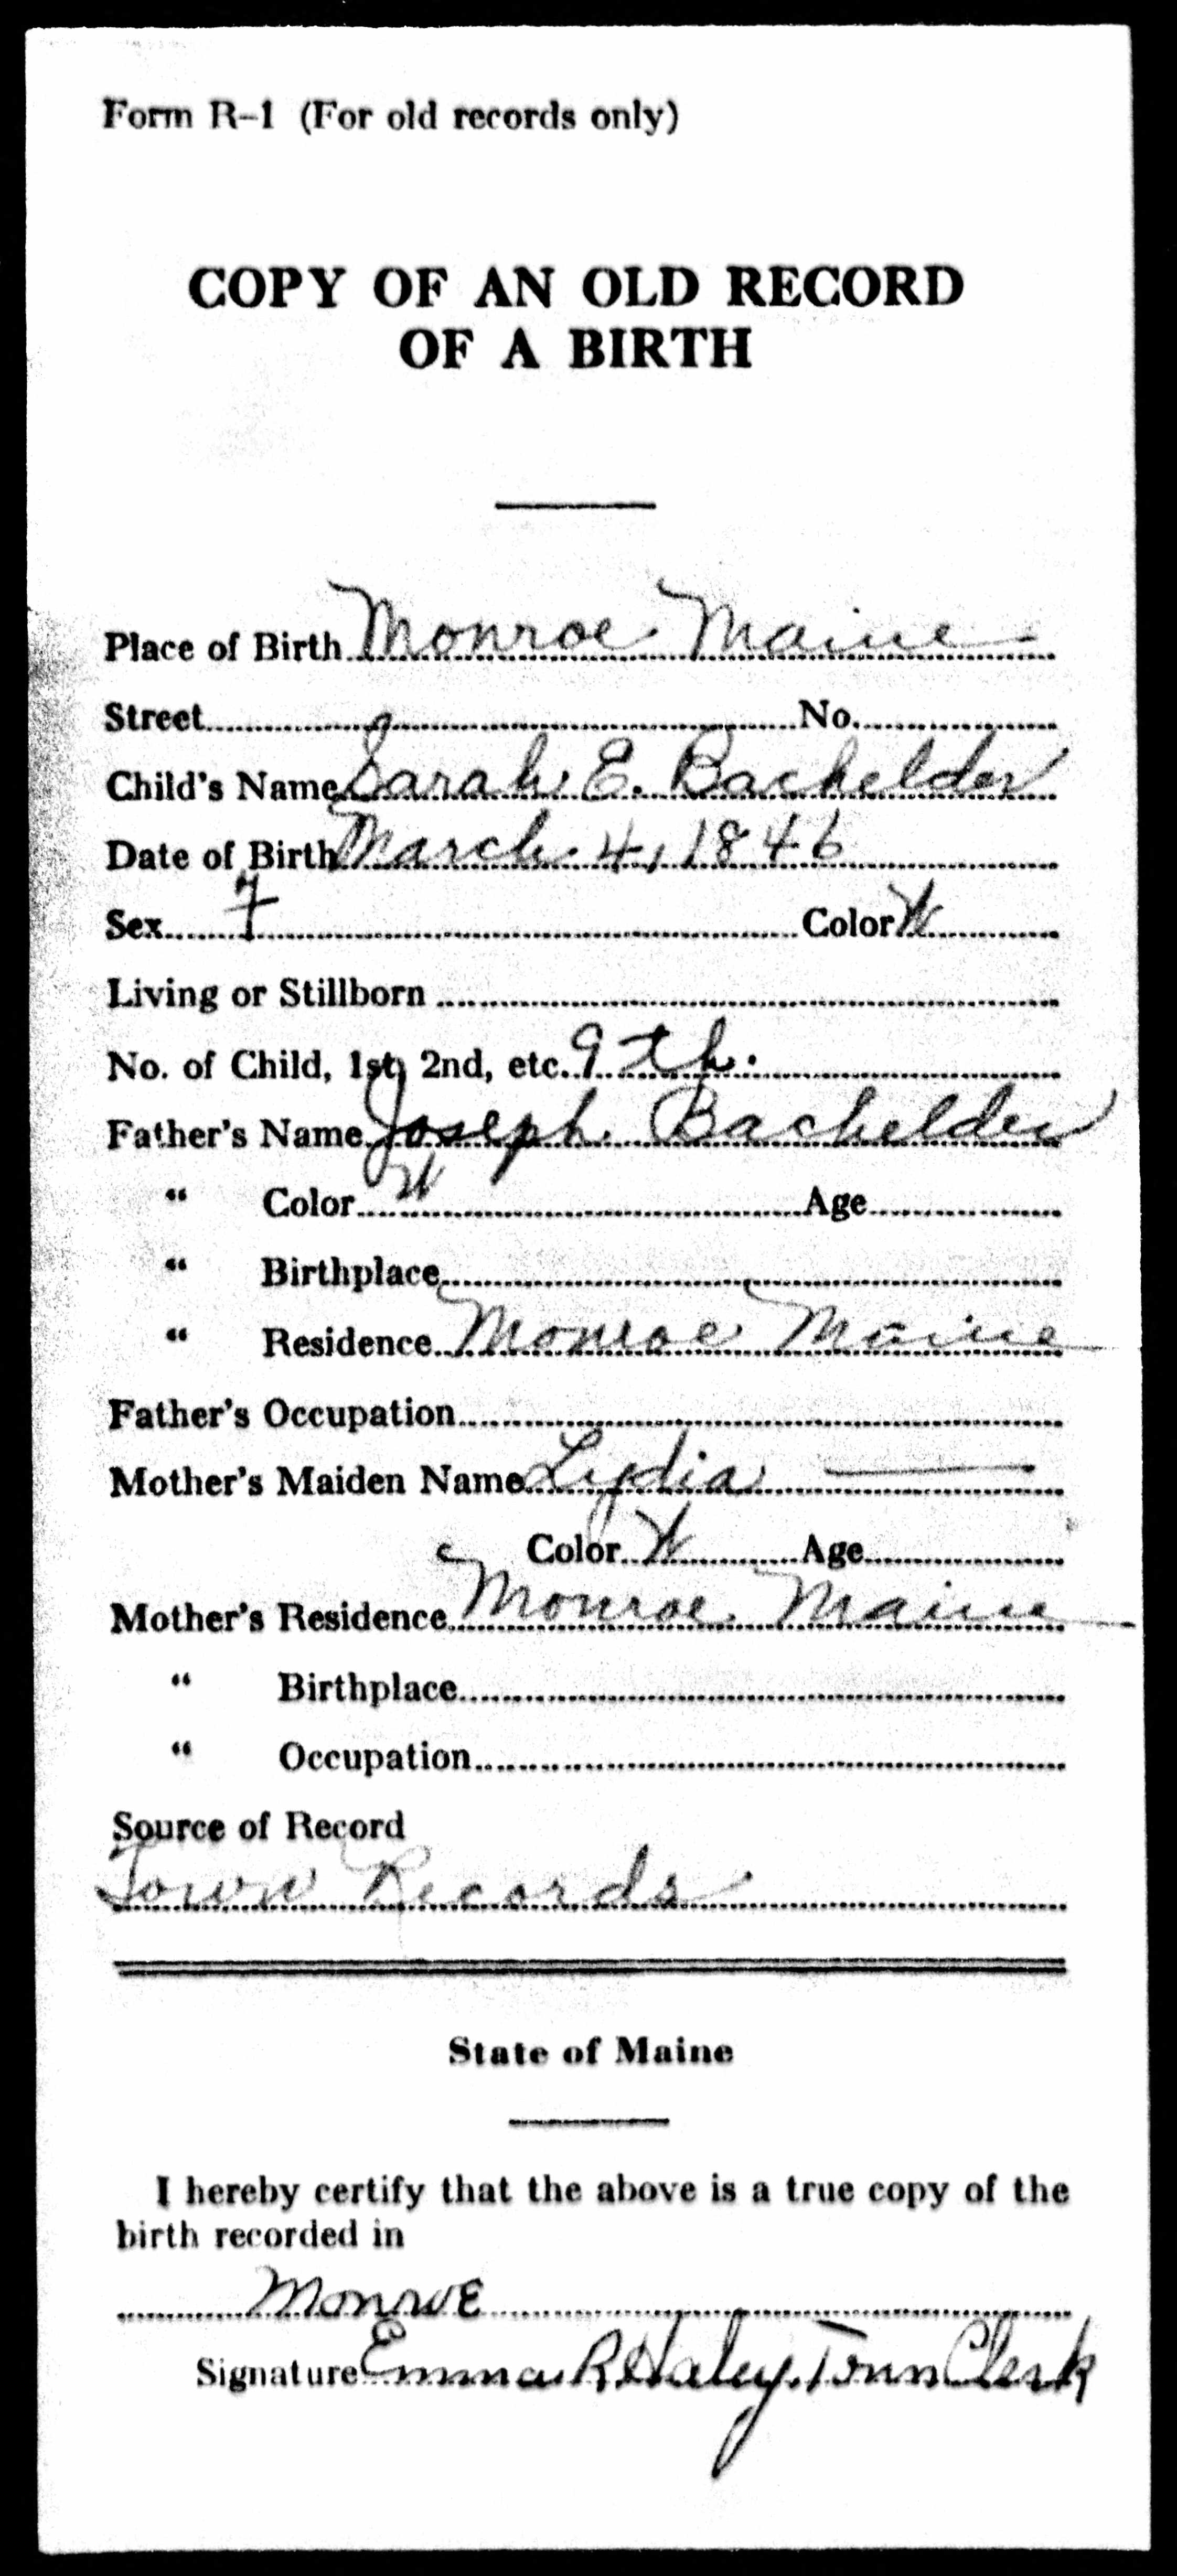 Form R-1 (For old records only)
COPY OF AN OLD RECORD
OF A BIRTH
Place of Birth Monroe Maine
Street No.
Child's Name Sarah E. Bachelder
Date of Birth March 4, 1846
Sex F Color W
Living or Stillborn
No. of Child, 1st, 2nd, etc. 9th.
Father's Name Joseph Bachelder
" Color W Age
" Birthplace
" Residence Monroe Maine
Father's Occupation
Mother's Maiden Name Lydia —
Color W Age
Mother's Residence Monroe Maine
" Birthplace
" Occupation
Source of Record
Town Records
State of Maine
I hereby certify that the above is a true copy of the
birth recorded in
Monroe
Signature Emma R Haley, Town Clerk